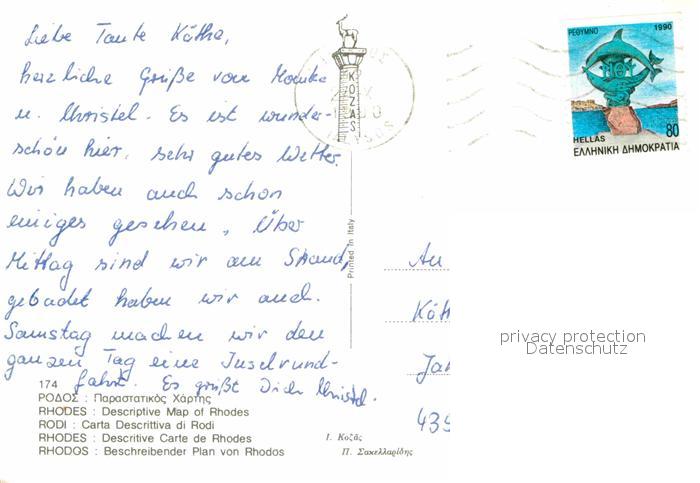 Liebe Tante Käthe,
herzliche Grüße von Monika
u. Christel. Es ist wunder-
schön hier, sehr gutes Wetter.
Wir haben auch schon
einiges gesehen, Über
Mittag sind wir am Strand,
gebadet haben wir auch.
Samstag machen wir den
ganzen Tag eine Inselrund-
fahrt. Es grüßt Dich Christel.
174
ΡΟΔΟΣ : Παραστατικός Χάρτης
RHODES : Descriptive Map of Rhodes
RODI : Carta Descrittiva di Rodi
RHODES : Descritive Carte de Rhodes
RHODOS : Beschreibender Plan von Rhodos
Ι. Κοζᾶς
Π. Σακελλαρίδης
KOZAS
Printed in Italy
ΡΕΘΥΜΝΟ 1990
HELLAS 80
ΕΛΛΗΝΙΚΗ ΔΗΜΟΚΡΑΤΙΑ
An
Käth
Jan
439
privacy protection
Datenschutz